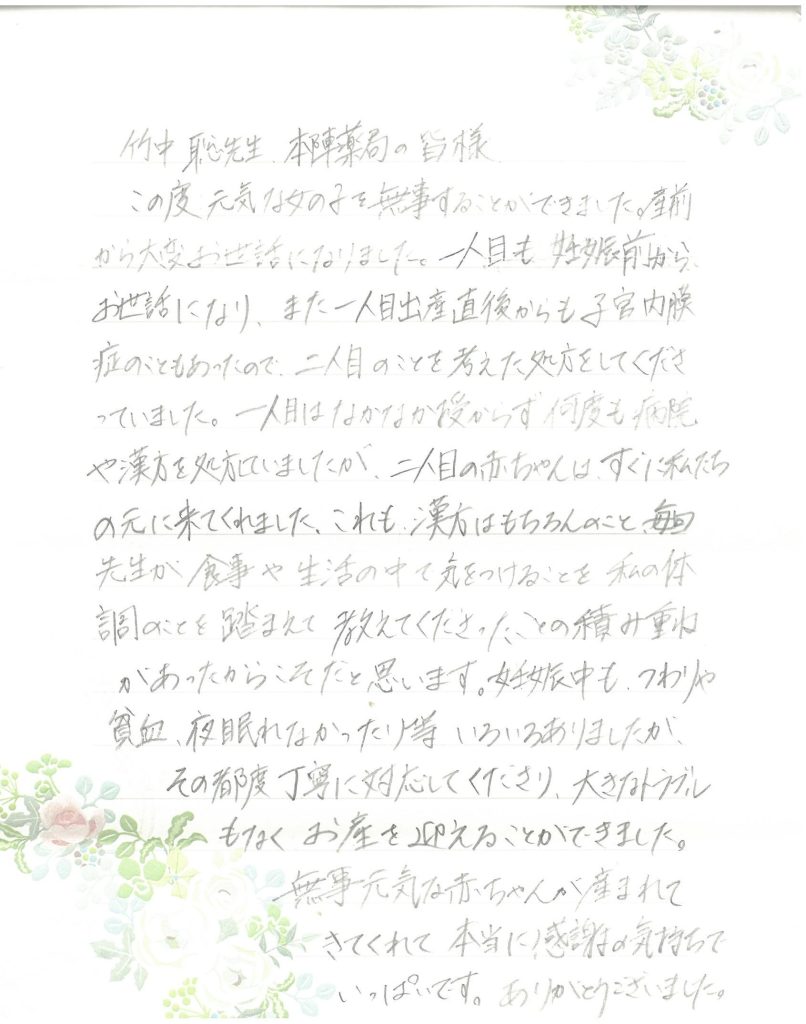 竹中 聡先生、本陣薬局の皆様
この度、元気な女の子を無事することができました。産前
から大変お世話になりました。一人目も妊娠前から、
お世話になり、また一人目出産直後からも子宮内膜
症のこともあったので、二人目のことを考えた処方をしてくださ
っていました。一人目はなかなか授からず何度も病院
や漢方を処方していましたが、二人目の赤ちゃんは、すぐに私たち
の元に来てくれました、これも、漢方はもちろんのこと、毎回
先生が食事や生活の中で気をつけることを私の体
調のことを踏まえて教えてくださったことの積み重ね
があったからこそだと思います。妊娠中も、つわりや
貧血、夜眠れなかったり等いろいろありましたが、
その都度丁寧に対応してくださり、大きなトラブル
もなくお産を迎えることができました。
無事元気な赤ちゃんが産まれて
きてくれて本当に感謝の気持ちで
いっぱいです。ありがとうございました。